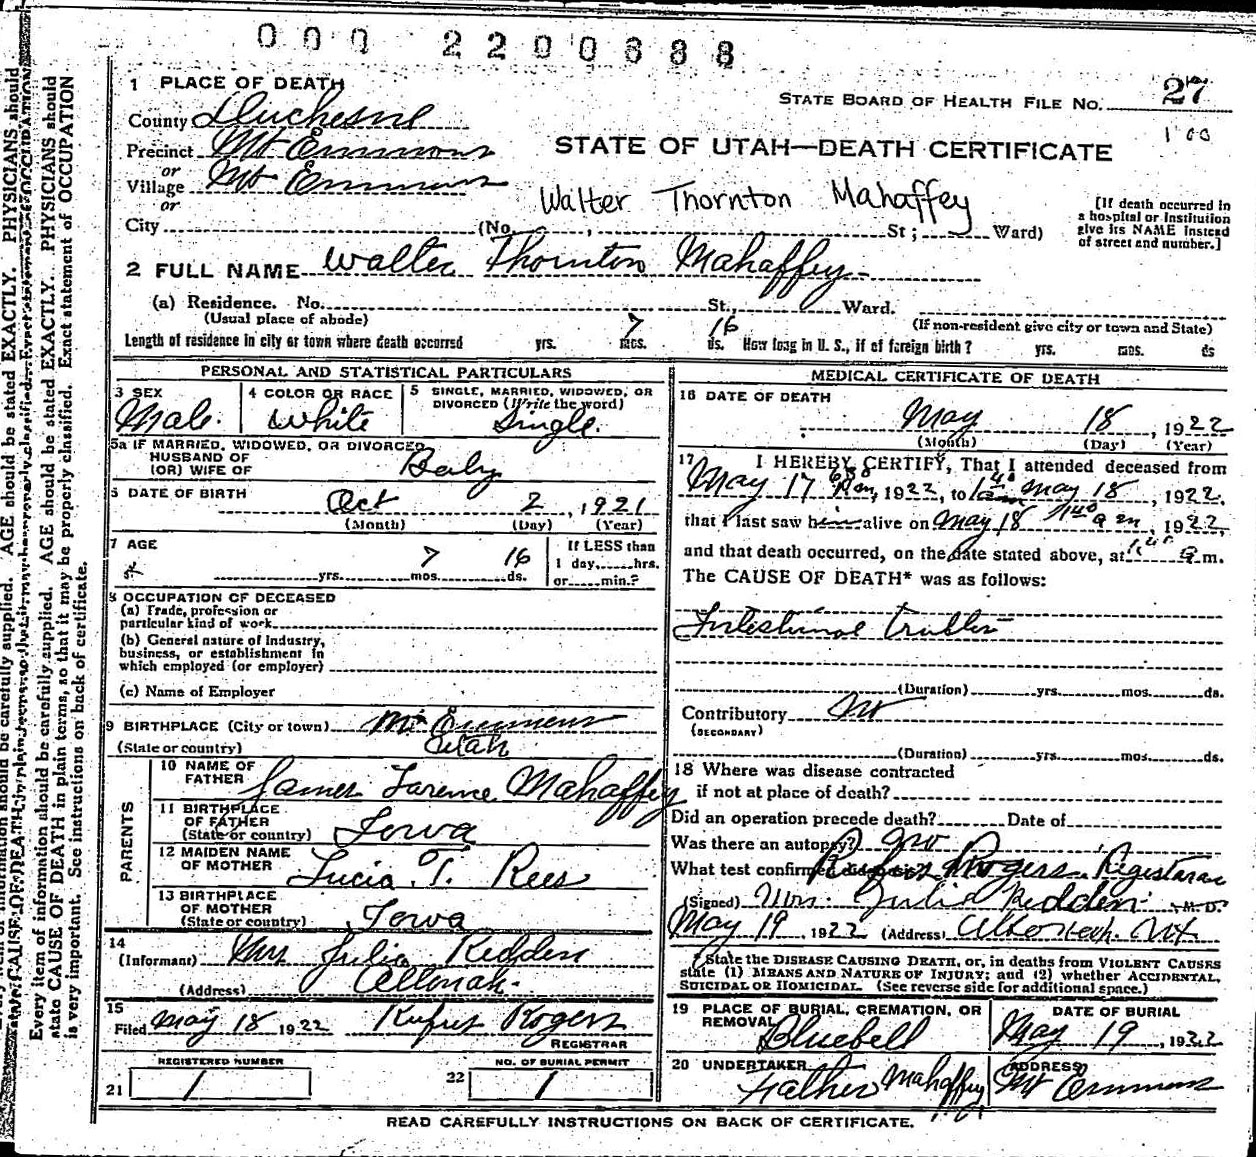 000 2200688
1 PLACE OF DEATH
STATE BOARD OF HEALTH FILE No. 27
County Duchesne
100
Precinct Mt Emmons
STATE OF UTAH—DEATH CERTIFICATE
or
Village Mt Emmons
or
Walter Thornton Mahaffey
City (No. , St; Ward)
[If death occurred in
a hospital or institution
give its NAME instead
of street and number.]
2 FULL NAME Walter Thornton Mahaffey
(a) Residence. No. St., Ward.
(Usual place of abode)
(If non-resident give city or town and State)
Length of residence in city or town where death occurred yrs. 7 mos. 16 ds. How long in U. S., if of foreign birth? yrs. mos. ds
PERSONAL AND STATISTICAL PARTICULARS
3 SEX Male.
4 COLOR OR RACE White
5 SINGLE, MARRIED, WIDOWED, OR
DIVORCED (Write the word)
Single.
5a IF MARRIED, WIDOWED, OR DIVORCED
HUSBAND OF
(OR) WIFE OF Baby
6 DATE OF BIRTH Oct 2, 1921
(Month) (Day) (Year)
7 AGE yrs. 7 mos. 16 ds.
If LESS than
1 day, hrs.
or min.?
8 OCCUPATION OF DECEASED
(a) Trade, profession or
particular kind of work
(b) General nature of industry,
business, or establishment in
which employed (or employer)
(c) Name of Employer
9 BIRTHPLACE (City or town) Mt Emmons
(State or country) Utah
PARENTS
10 NAME OF
FATHER James Larence Mahaffey
11 BIRTHPLACE
OF FATHER
(State or country) Iowa
12 MAIDEN NAME
OF MOTHER Lucia T. Rees
13 BIRTHPLACE
OF MOTHER
(State or country) Iowa
14
(Informant) Mrs Julia Redden
(Address) Altonah.
15
Filed May 18 1922 Rufus Rogers
REGISTRAR
REGISTERED NUMBER
21 1
NO. OF BURIAL PERMIT
22 1
MEDICAL CERTIFICATE OF DEATH
16 DATE OF DEATH
May 18, 1922
(Month) (Day) (Year)
17 I HEREBY CERTIFY, That I attended deceased from
May 17, 1922, to May 18, 1922.
that I last saw him alive on May 18 a m, 1922,
and that death occurred, on the date stated above, at a m.
The CAUSE OF DEATH* was as follows:
Intestinal trubles
(Duration) yrs. mos. ds.
Contributory No
(SECONDARY)
(Duration) yrs. mos. ds.
18 Where was disease contracted
if not at place of death?
Did an operation precede death? Date of
Was there an autopsy? No
What test confirmed diagnosis Rufus Rogers Registarar
(Signed) Mrs. Julia Redden M. D.
May 19 1922 (Address) Altonah. Ut
*State the DISEASE CAUSING DEATH, or, in deaths from VIOLENT CAUSES
state (1) MEANS AND NATURE OF INJURY; and (2) whether ACCIDENTAL,
SUICIDAL OR HOMICIDAL. (See reverse side for additional space.)
19 PLACE OF BURIAL, CREMATION, OR
REMOVAL Bluebell
DATE OF BURIAL
May 19, 1922
20 UNDERTAKER
Father Mahaffey
ADDRESS
Mt Emmons
READ CAREFULLY INSTRUCTIONS ON BACK OF CERTIFICATE.
Every item of information should be carefully supplied. AGE should be stated EXACTLY. PHYSICIANS should
state CAUSE OF DEATH in plain terms, so that it may be properly classified. Exact statement of OCCUPATION
is very important. See instructions on back of certificate.